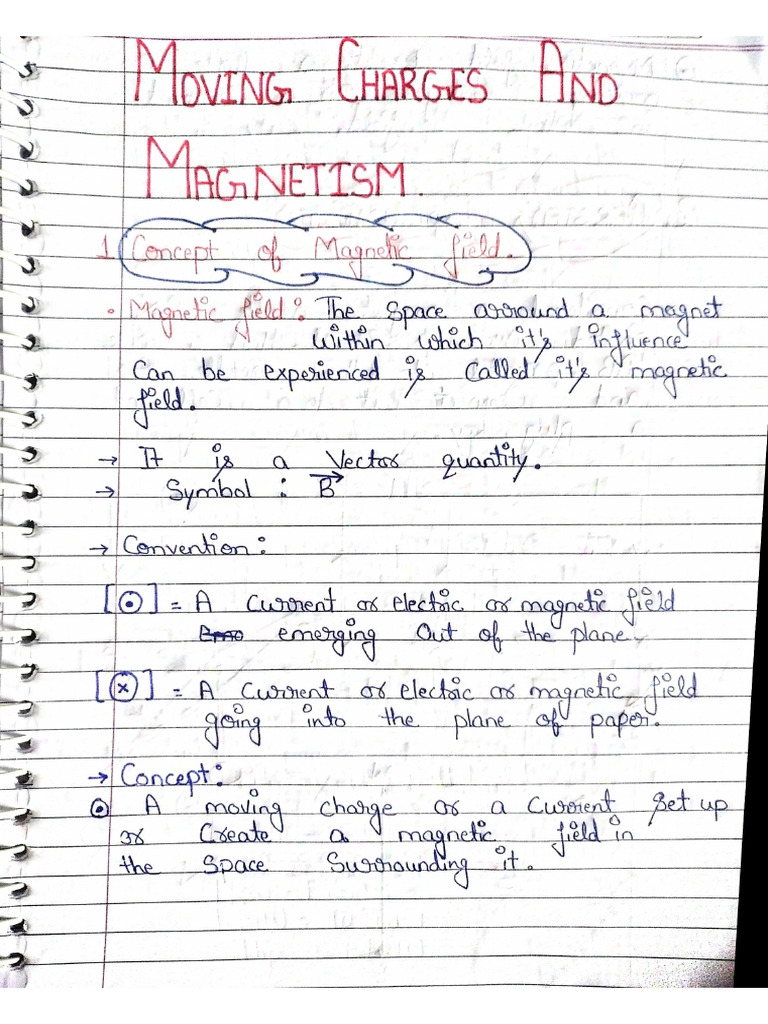 MOVING CHARGES AND
MAGNETISM.
1 Concept of Magnetic field.
• Magnetic field: The space arround a magnet
within which it's influence
Can be experienced is called it's magnetic
field.
→ It is a Vector quantity.
→ Symbol : B⃗
→ Convention:
[⊙] = A current or electric or magnetic field
emerging out of the plane.
[⊗] = A current or electric or magnetic field
going into the plane of paper.
→ Concept:
⊙ A moving charge or a current set up
or Create a magnetic field in
the space surrounding it.